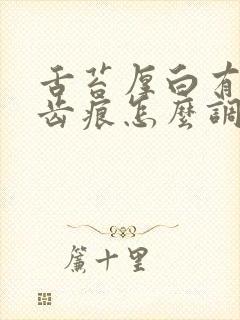 舌苔厚白有
齿痕怎麼調
簾十里